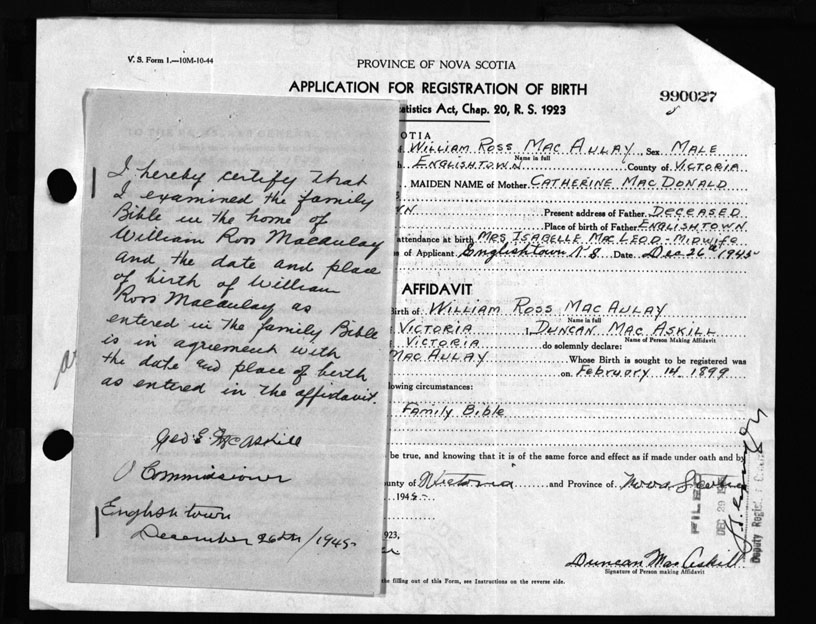 V. S. Form 1.—10M-10-44
PROVINCE OF NOVA SCOTIA
APPLICATION FOR REGISTRATION OF BIRTH
990027
tatistics Act, Chap. 20, R. S. 1923
OTIA
WILLIAM ROSS MAC AULAY, Sex MALE
Name in full
ENGLISHTOWN County of VICTORIA
MAIDEN NAME of Mother CATHERINE MACDONALD
Present address of Father DECEASED
Place of birth of Father ENGLISHTOWN
attendance at birth MRS ISABELLE MACLEOD - MIDWIFE
of Applicant Englishtown N S Date Dec 26th 1945
AFFIDAVIT
Birth of WILLIAM ROSS MAC AULAY
Name in full
VICTORIA I, DUNCAN MAC ASKILL
Name of Person Making Affidavit
VICTORIA do solemnly declare:
MAC AULAY Whose Birth is sought to be registered was
on February 14 1899
lowing circumstances:
Family Bible
be true, and knowing that it is of the same force and effect as if made under oath and by
unty of Victoria and Province of Nova Scotia
1945-
1923,
Duncan MacAskill
Signature of Person making Affidavit
the filling out of this Form, see Instructions on the reverse side.
FILED
DEC 29
Deputy Registrar
I hereby certify that
I examined the family
Bible in the home of
William Ross Macaulay
and the date and place
of birth of William
Ross Macaulay as
entered in the family Bible
is in agreement with
the date and place of birth
as entered in the affidavit.
Geo S McAskill
Commissioner
Englishtown
December 26th/1945-